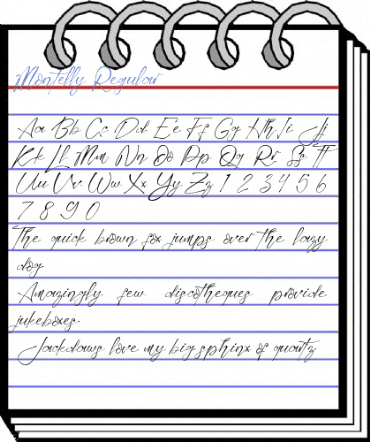 Montelly Regular
Aa Bb Cc Dd Ee Ff Gg Hh Ii Jj
Kk Ll Mm Nn Oo Pp Qq Rr Ss Tt
Uu Vv Ww Xx Yy Zz 1 2 3 4 5 6
7 8 9 0
The quick brown fox jumps over the lazy
dog
Amazingly few discotheques provide
jukeboxes.
Jackdaws love my big sphinx of quartz